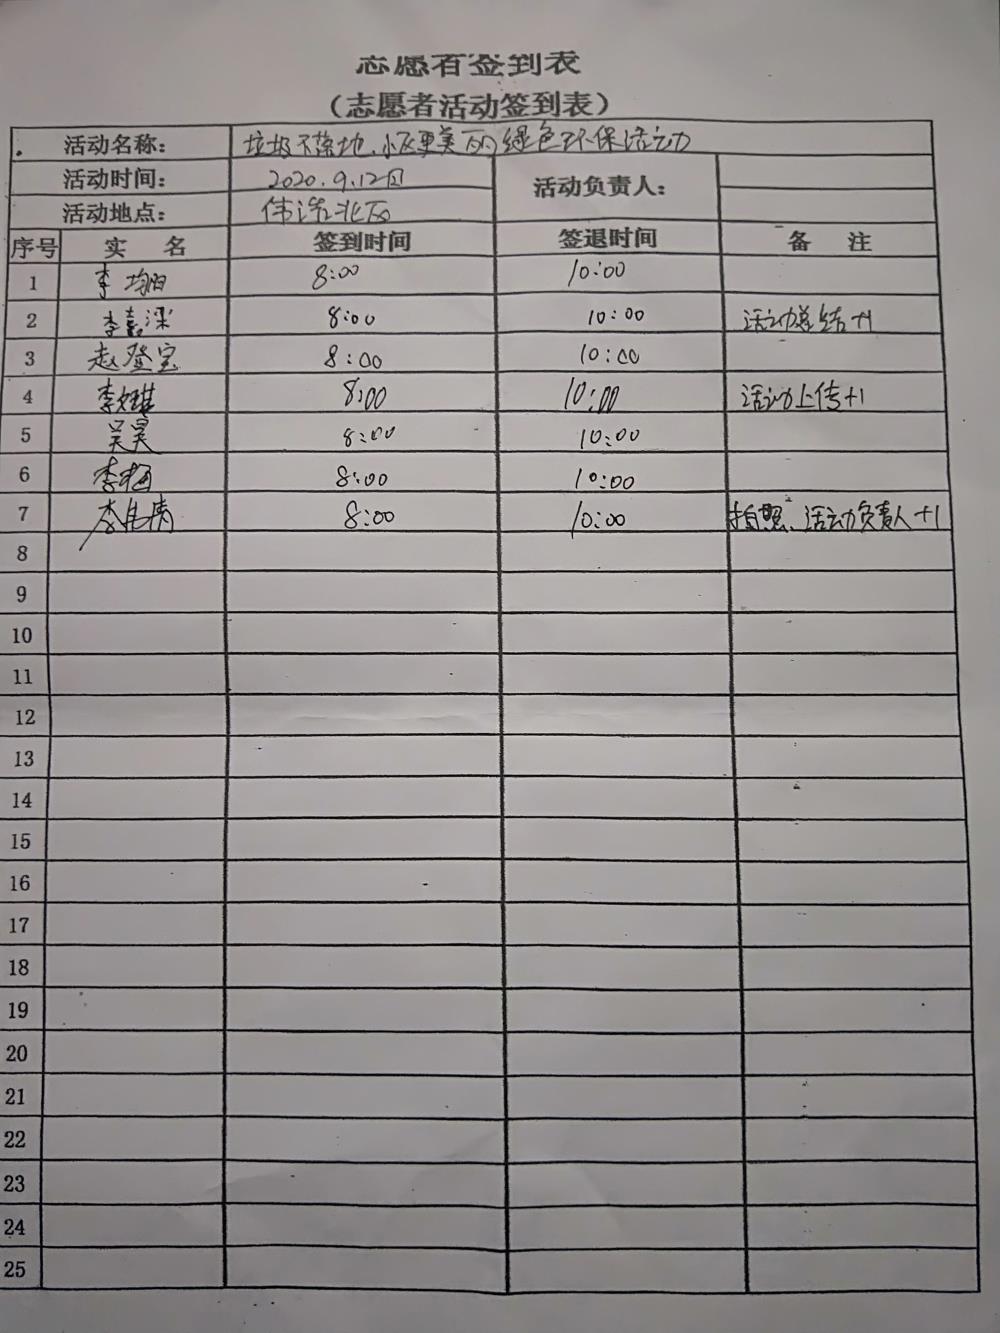 志愿者签到表
（志愿者活动签到表）
活动名称： 垃圾不落地、小区更美丽绿色环保活动
活动时间： 2020.9.12日 活动负责人：
活动地点： 北
序号 实 名 签到时间 签退时间 备 注
1 李均阳 8:00 10:00
2 李嘉 8:00 10:00 活动总结+1
3 赵登宝 8:00 10:00
4 李 8:00 10:00 活动上传+1
5 吴昊 8:00 10:00
6 李梅 8:00 10:00
7 李 8:00 10:00 拍照、活动负责人+1
8
9
10
11
12
13
14
15
16
17
18
19
20
21
22
23
24
25